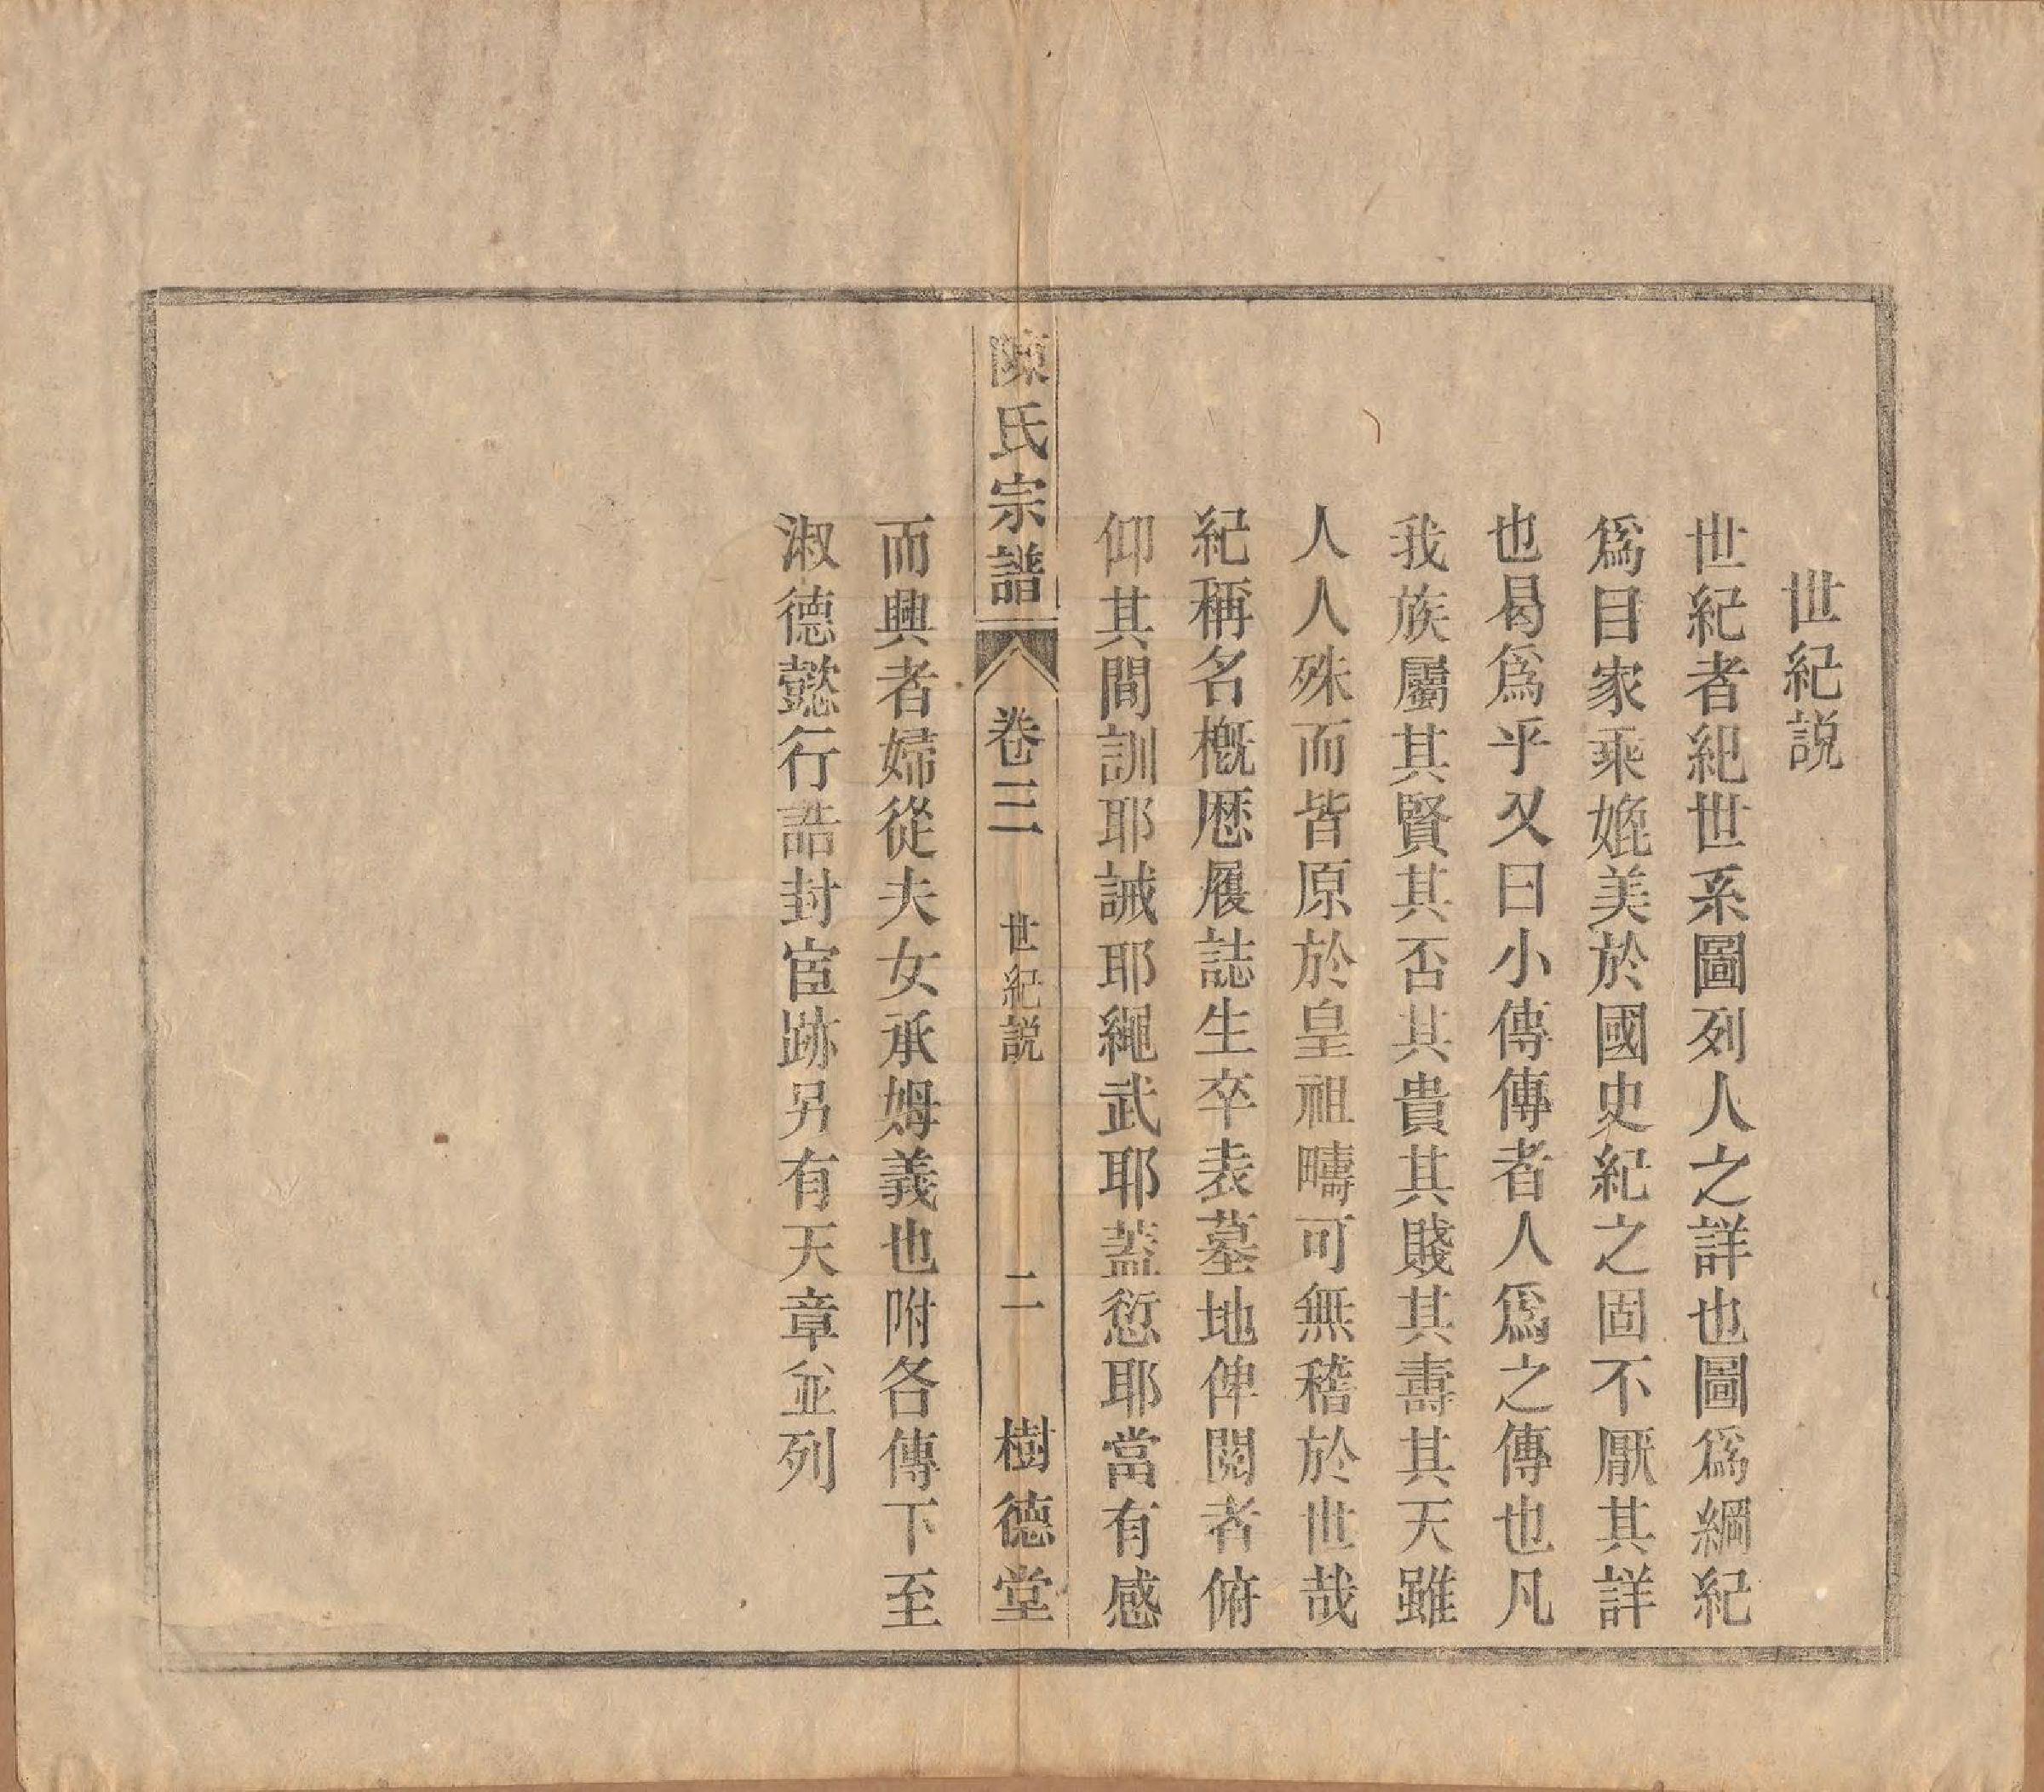 世紀説
世紀者紀世系圖列人之詳也圖爲綱紀
爲目家乘娩美於國史紀之固不厭其詳
也曷爲乎又曰小傳傳者人爲之傳也凡
我族屬其賢其否其貴其賤其壽其夭雖
人人殊而皆原於皇祖疇可無稽於世哉
紀稱名概歷履誌生卒表墓地俾閱者俯
仰其間訓耶誡耶繩武耶蓋愆耶當有感
陳氏宗譜 卷三 世紀説 二 樹德堂
而興者婦從夫女承姆義也附各傳下至
淑德懿行誥封宦跡另有天章並列